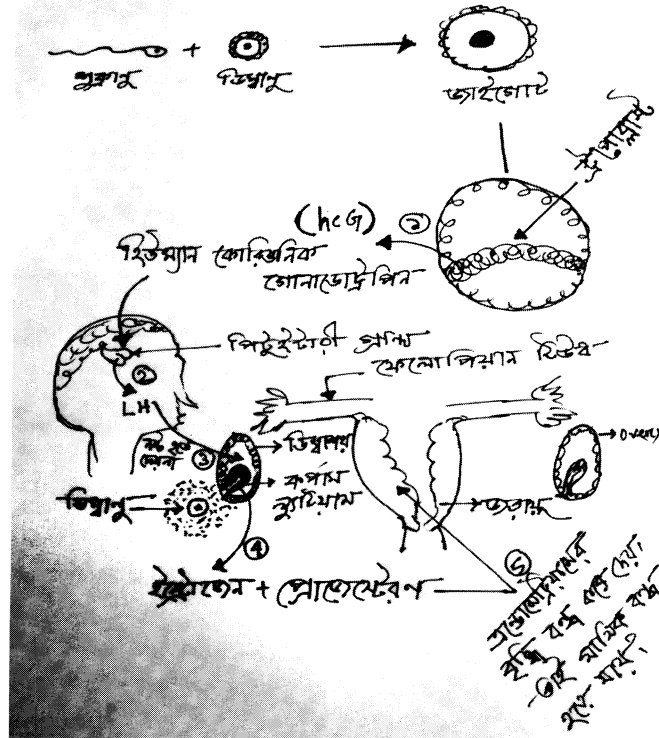 +
শুক্রানু
ডিম্বানু
জাইগোট
ট্রপোব্লাস্ট
(hcG) ১
হিউম্যান কোরিওনিক
গোনাডোট্রপিন
পিটুইটারী গ্রন্থি
ফেলোপিয়ান টিউব
২
LH
নষ্ট হতে
দেয়না
৩
ডিম্বাশয়
কর্পাস
ল্যুটিয়াম
ডিম্বানু
জরায়ু
Ovary
৪
ইস্ট্রোজেন + প্রোজেস্টেরণ
৫
এন্ডোমেট্রিয়ামের
বৃদ্ধি বন্ধ করে দেয়।
তাই মাসিক বন্ধ
হয়ে যায়।